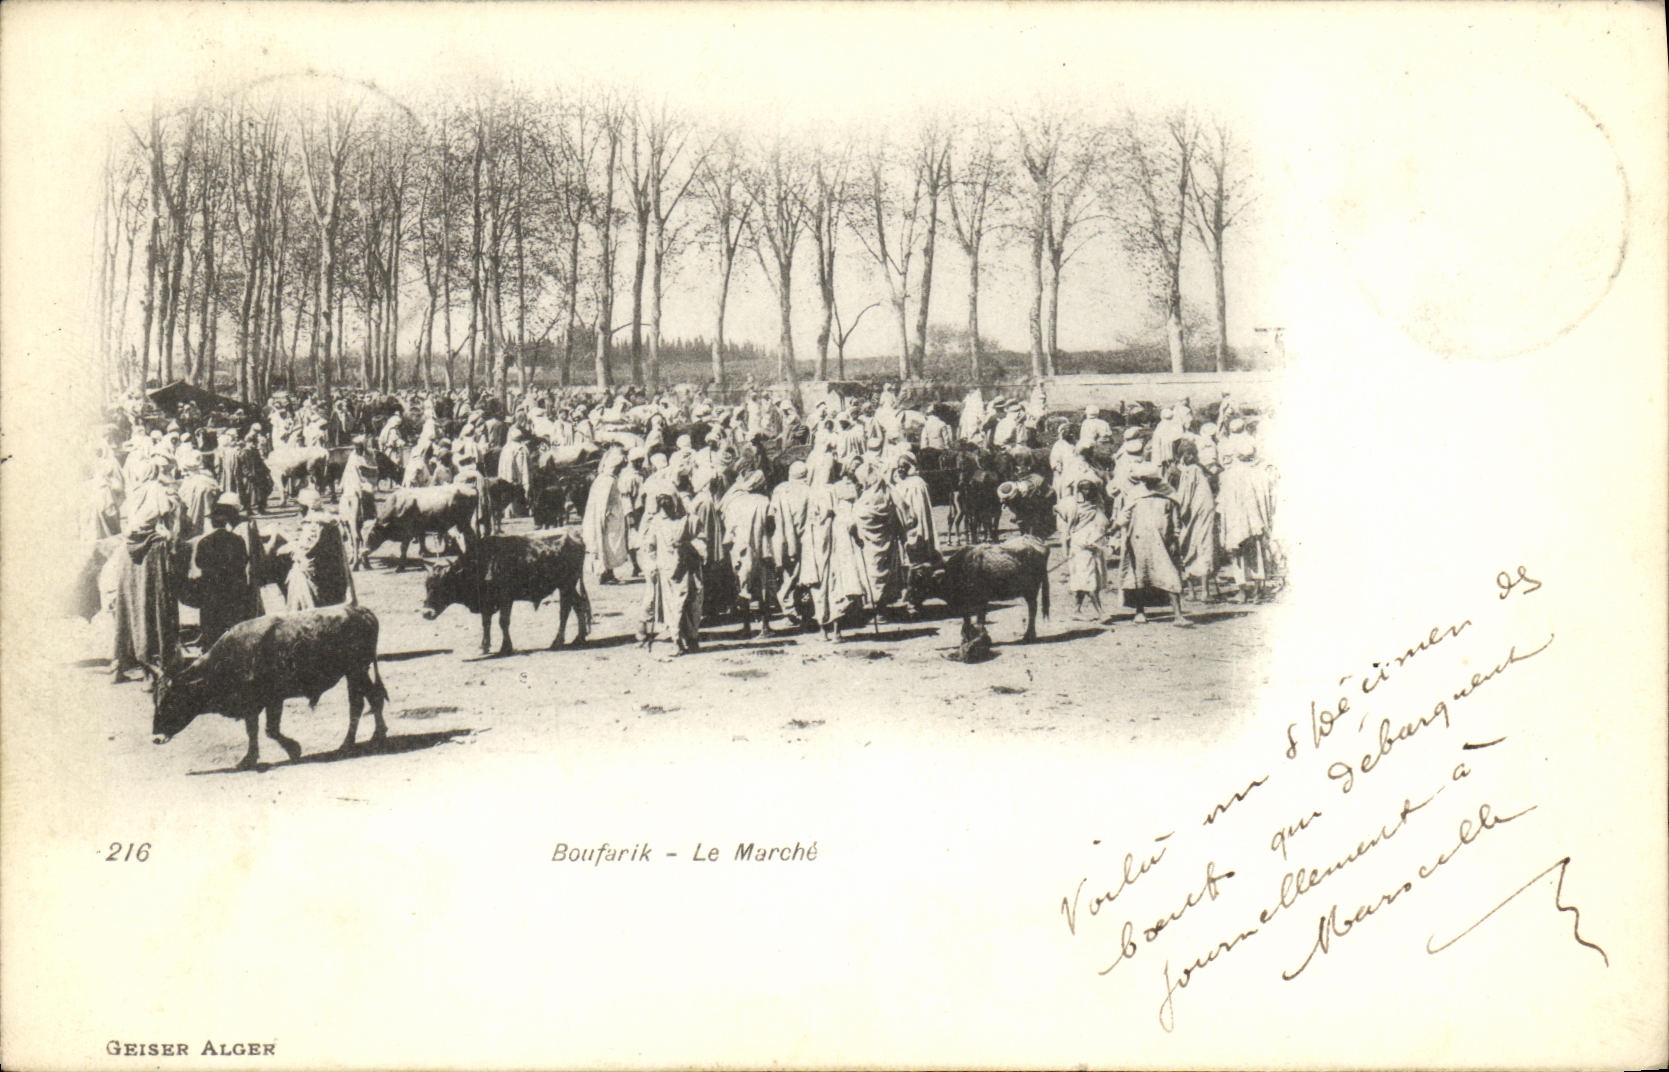 216
Boufarik - Le Marché
Voilà un spécimen des
bœufs qui débarquent
journellement à
Marseille
GEISER ALGER